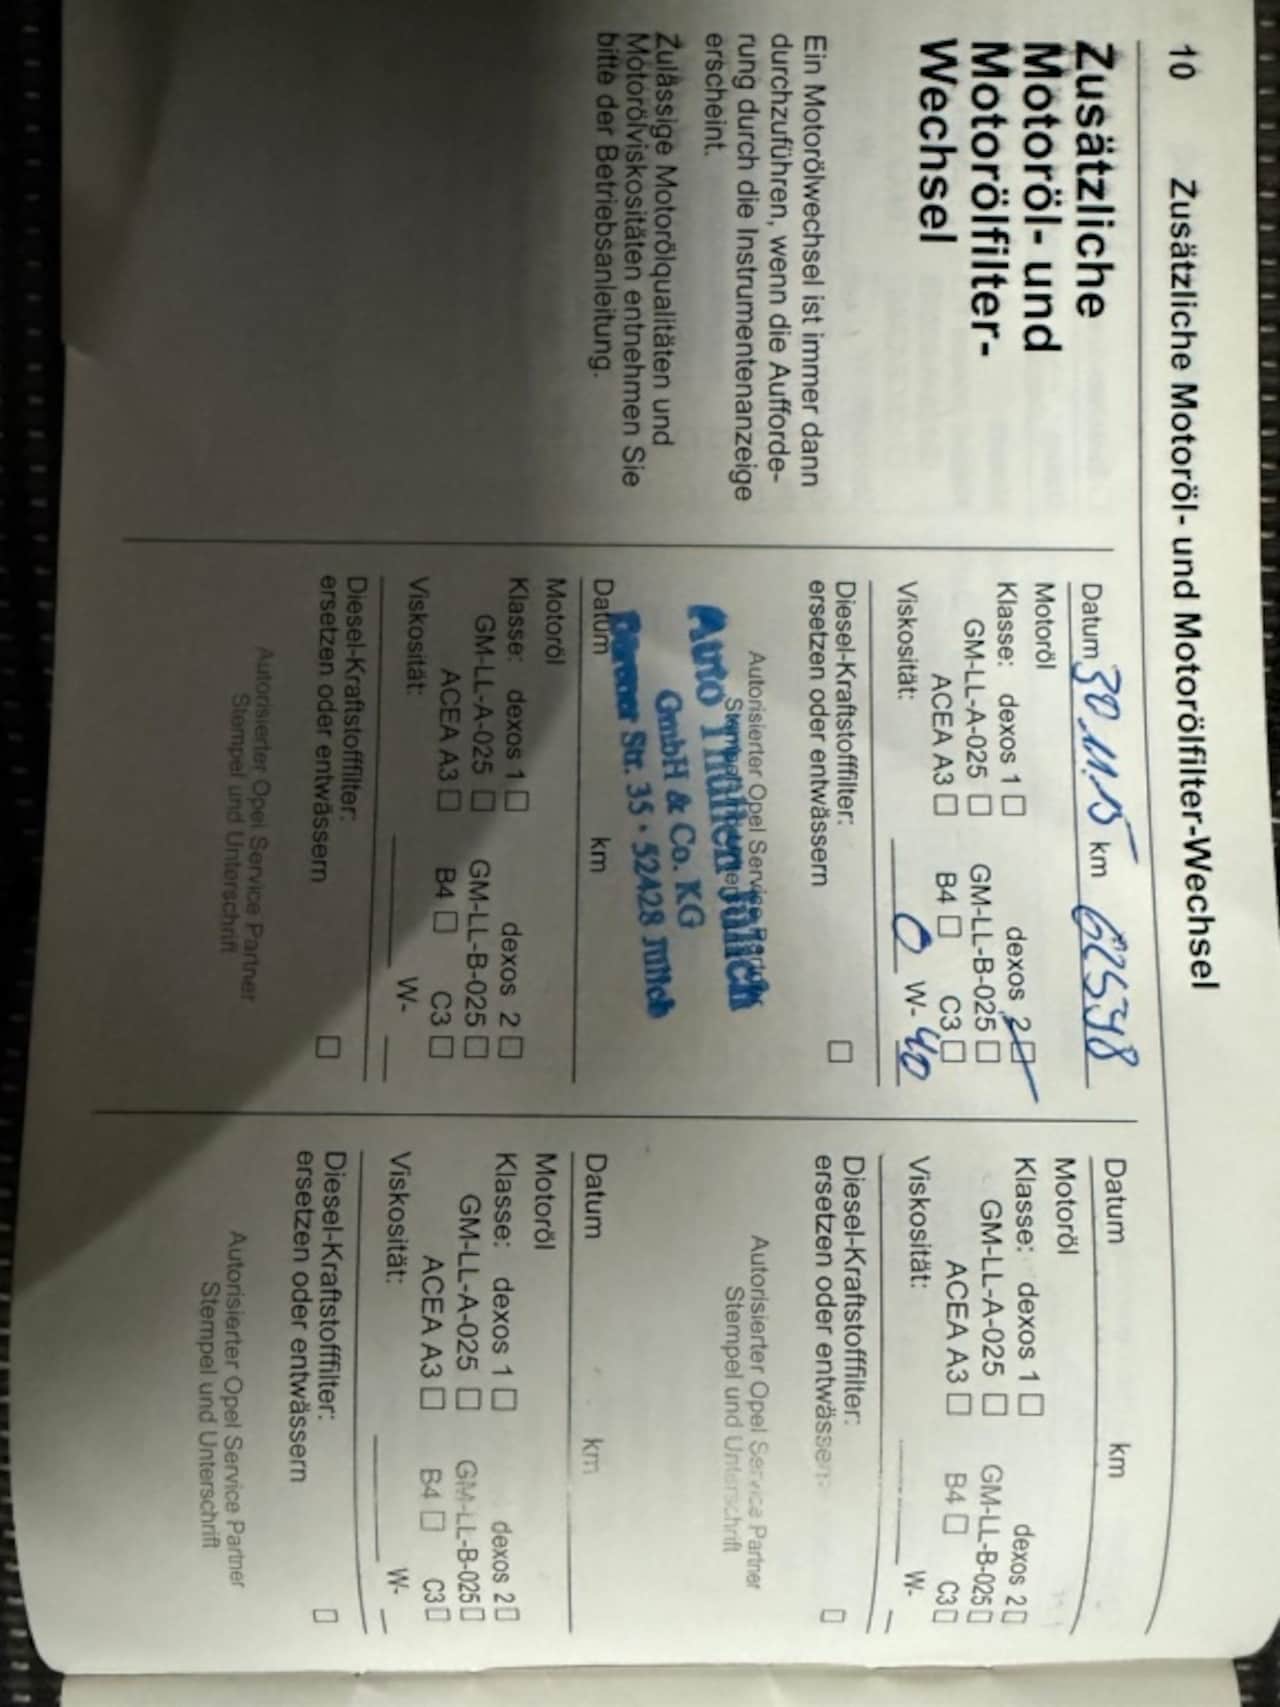 10 Zusätzliche Motoröl- und Motorölfilter-Wechsel
Zusätzliche
Motoröl- und
Motorölfilter-
Wechsel
Ein Motorölwechsel ist immer dann
durchzuführen, wenn die Aufforde-
rung durch die Instrumentenanzeige
erscheint.
Zulässige Motorölqualitäten und
Motorölviskositäten entnehmen Sie
bitte der Betriebsanleitung.
Datum 30.11.15 km
Motoröl
Klasse: dexos 1 ☐ dexos 2 ☐
GM-LL-A-025 ☐ GM-LL-B-025 ☐
ACEA A3 ☐ B4 ☐ C3 ☐
Viskosität: 0 W- 40
Diesel-Kraftstofffilter:
ersetzen oder entwässern ☐
Autorisierter Opel Service Partner
Auto Thüllen Jülich
GmbH & Co. KG
Dürener Str. 35 · 52428 Jülich
Datum km
Motoröl
Klasse: dexos 1 ☐ dexos 2 ☐
GM-LL-A-025 ☐ GM-LL-B-025 ☐
ACEA A3 ☐ B4 ☐ C3 ☐
Viskosität: W-
Diesel-Kraftstofffilter:
ersetzen oder entwässern ☐
Autorisierter Opel Service Partner
Stempel und Unterschrift
Datum km
Motoröl
Klasse: dexos 1 ☐ dexos 2 ☐
GM-LL-A-025 ☐ GM-LL-B-025 ☐
ACEA A3 ☐ B4 ☐ C3 ☐
Viskosität: W-
Diesel-Kraftstofffilter:
ersetzen oder entwässern ☐
Autorisierter Opel Service Partner
Stempel und Unterschrift
Datum km
Motoröl
Klasse: dexos 1 ☐ dexos 2 ☐
GM-LL-A-025 ☐ GM-LL-B-025 ☐
ACEA A3 ☐ B4 ☐ C3 ☐
Viskosität: W-
Diesel-Kraftstofffilter:
ersetzen oder entwässern ☐
Autorisierter Opel Service Partner
Stempel und Unterschrift